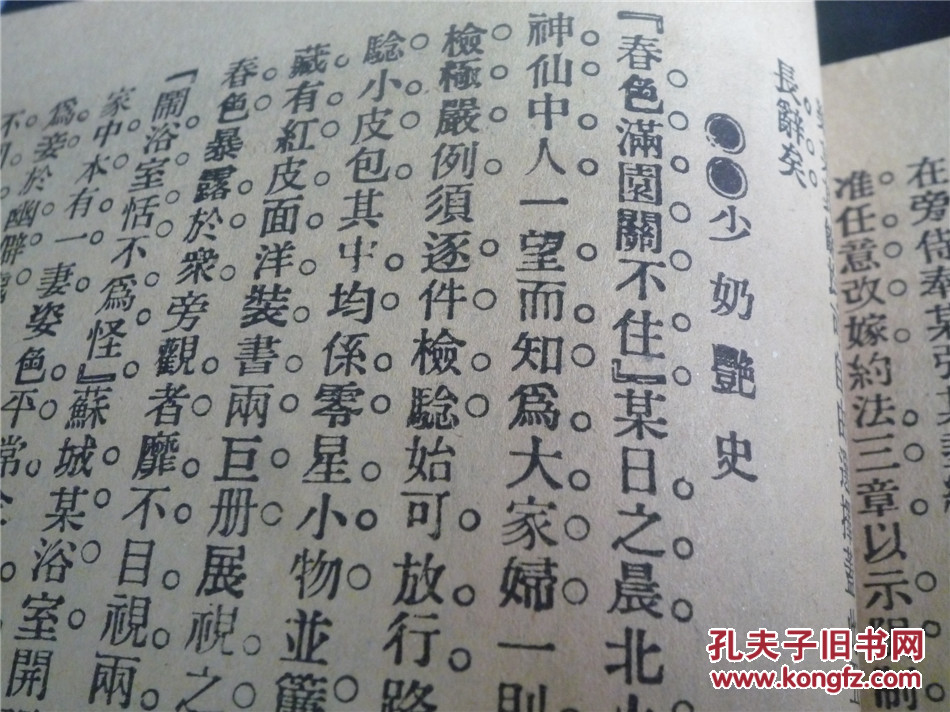 在旁侍奉某
准任意改嫁約法三章以示限制
長辭矣
●●少奶艷史
『春色滿園關不住』某日之晨北
神仙中人一望而知爲大家婦一則
檢極嚴例須逐件檢騐始可放行路
騐小皮包其中均係零星小物並篋
藏有紅皮面洋裝書兩巨册展視之
春色暴露於衆旁觀者靡不目視兩
『閙浴室恬不爲怪』蘇城某浴室開
家中本有一妻姿色平常
爲妾於幽僻
不
孔夫子旧书网
www.kongfz.com